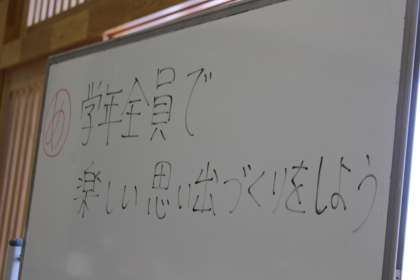 め 学年全員で
楽しい思い出づくりをしよう